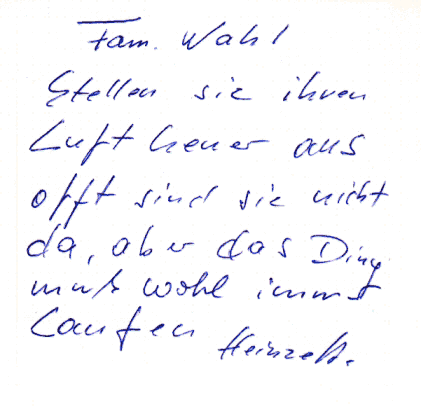 Fam. Wahl
Stellen sie ihren
Luft heuer aus
offt sind sie nicht
da, aber das Ding
muß wohl immer
Laufen